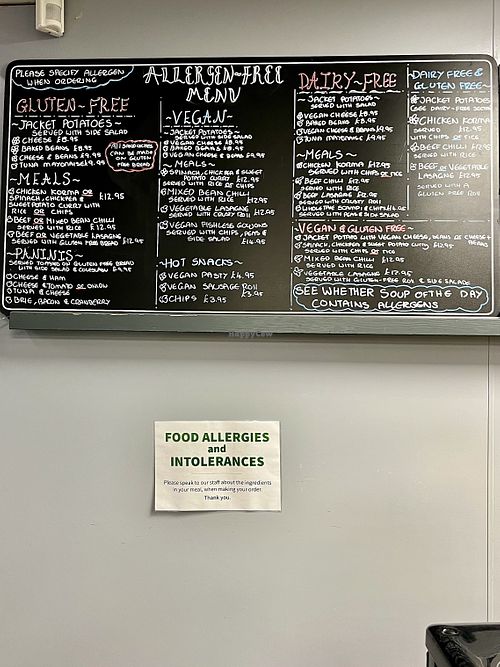 PLEASE SPECIFY ALLERGEN
WHEN ORDERING
ALLERGEN-FREE
MENU
GLUTEN-FREE
~JACKET POTATOES~
SERVED WITH SIDE SALAD
CHEESE £8.95
BAKED BEANS £8.95
CHEESE & BEANS £9.95
TUNA MAYONNAISE £9.95
All
CAN BE MADE
ON GLUTEN
FREE BREAD
~MEALS~
CHICKEN KORMA OR
SPINACH, CHICKPEA & £12.95
SWEET POTATO CURRY WITH
RICE OR CHIPS
BEEF OR MIXED BEAN CHILLI
SERVED WITH RICE £12.95
BEEF OR VEGETABLE LASAGNE,
SERVED WITH GLUTEN FREE BREAD £12.95
~PANINIS~
SERVED TOASTED ON GLUTEN FREE BREAD
WITH SIDE SALAD & COLESLAW £9.95
CHEESE & HAM
CHEESE & TOMATO OR ONION
TUNA & CHEESE
BRIE, BACON & CRANBERRY
~VEGAN~
~JACKET POTATOES~
SERVED WITH SIDE SALAD
VEGAN CHEESE £8.95
BAKED BEANS £8.95
VEGAN CHEESE & BEANS £9.95
~MEALS~
SPINACH, CHICKPEA & SWEET
POTATO CURRY £12.95
SERVED WITH RICE OR CHIPS
MIXED BEAN CHILLI
SERVED WITH RICE £12.95
VEGETABLE LASAGNE
SERVED WITH CRUSTY ROLL £12.95
VEGAN FISHLESS GOUJONS
SERVED WITH CHIPS, PEAS &
SIDE SALAD
£14.95
~HOT SNACKS~
VEGAN PASTY £4.95
VEGAN SAUSAGE ROLL
£3.95
CHIPS £3.95
DAIRY-FREE
~JACKET POTATOES~
SERVED WITH SALAD
VEGAN CHEESE £8.95
BAKED BEANS £8.95
VEGAN CHEESE & BEANS £9.95
TUNA MAYONNAISE £9.95
~MEALS~
CHICKEN KORMA £12.95
SERVED WITH CHIPS OR RICE
BEEF CHILLI £12.95
SERVED WITH RICE
BEEF LASAGNE £12.95
SERVED WITH CRUSTY ROLL
WHOLETAIL SCAMPI & CHIPS
SERVED WITH PEAS & SIDE SALAD
DAIRY FREE &
GLUTEN FREE~
JACKET POTATO
CHICKEN KORMA
SERVED £12.95
WITH CHIPS OR RICE
BEEF CHILLI £12.95
SERVED WITH RICE
BEEF OR VEGETABLE
LASAGNE £12.95
SERVED WITH A
GLUTEN FREE ROLL
VEGAN & GLUTEN FREE~
JACKET POTATO WITH VEGAN CHEESE, BEANS OR CHEESE +
BEANS
SPINACH, CHICKPEA & SWEET POTATO CURRY £12.95
SERVED WITH CHIPS OR RICE
MIXED BEAN CHILLI £12.95
SERVED WITH RICE
VEGETABLE LASAGNE £12.95
SERVED WITH GLUTEN-FREE ROLL & SIDE SALAD
SEE WHETHER SOUP OF THE DAY
CONTAINS ALLERGENS
FOOD ALLERGIES
and
INTOLERANCES
Please speak to our staff about the ingredients
in your meal, when making your order.
Thank you.
HappyCow